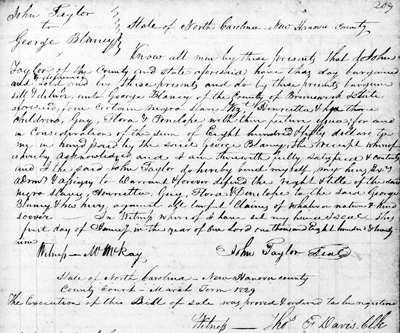 209
John Taylor
to
State of North Carolina New Hanover County
George Blaney
Know all men by these presents that I John
Taylor of the County and State aforesaid have this day bargained
and by these presents and do by these presents bargain
sell & deliver unto George Blaney of the County of Brunswick & State
aforesaid, one certain Negro Slave Henrietta & her three
children, Guy, Flora & Penelope with their future issue, for and
in consideration of the sum of Eight hundred & fifty dollars to
me in hand paid by the said George Blaney, the receipt whereof
is hereby acknowledged and I am therewith fully satisfied & contented
and I the said John Taylor do hereby bind myself, my heirs, Exrs
Admrs & Assigns to Warrant & forever defend the right & title of the said
negro slaves Henrietta, Guy, Flora & Penelope to the said George
Blaney & his heirs, against all lawful claims of whatever nature & kind
soever In Witness whereof I have set my hand & seal this
first day of in the year of our Lord one thousand Eight hundred & twenty
nine
Witness — McKay
John Taylor Seal
State of North Carolina — New Hanover county
County Court — March Term 1829
The Execution of this Bill of sale was proved & ordered to be registered
Witness — Thos. F. Davis. Clk